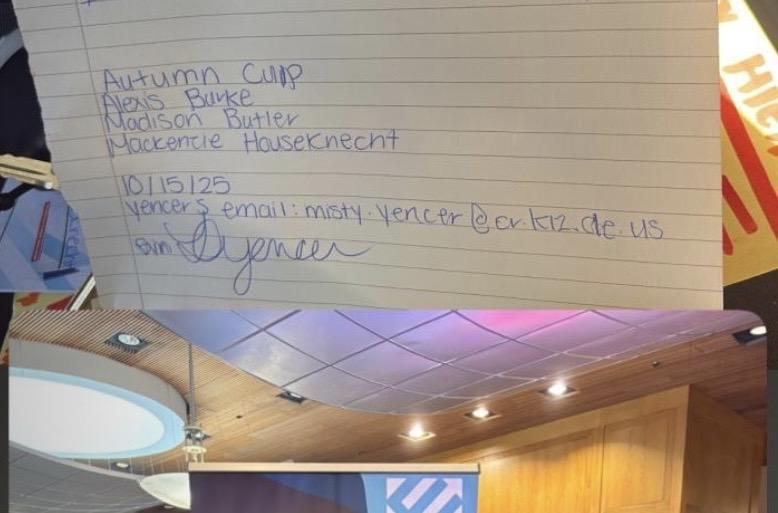 Autumn Culp
Alexis Burke
Madison Butler
Mackenzie Houseknecht
10/15/25
yencers email: misty.yencer@cr.k12.de.us
Yencer
HIGH